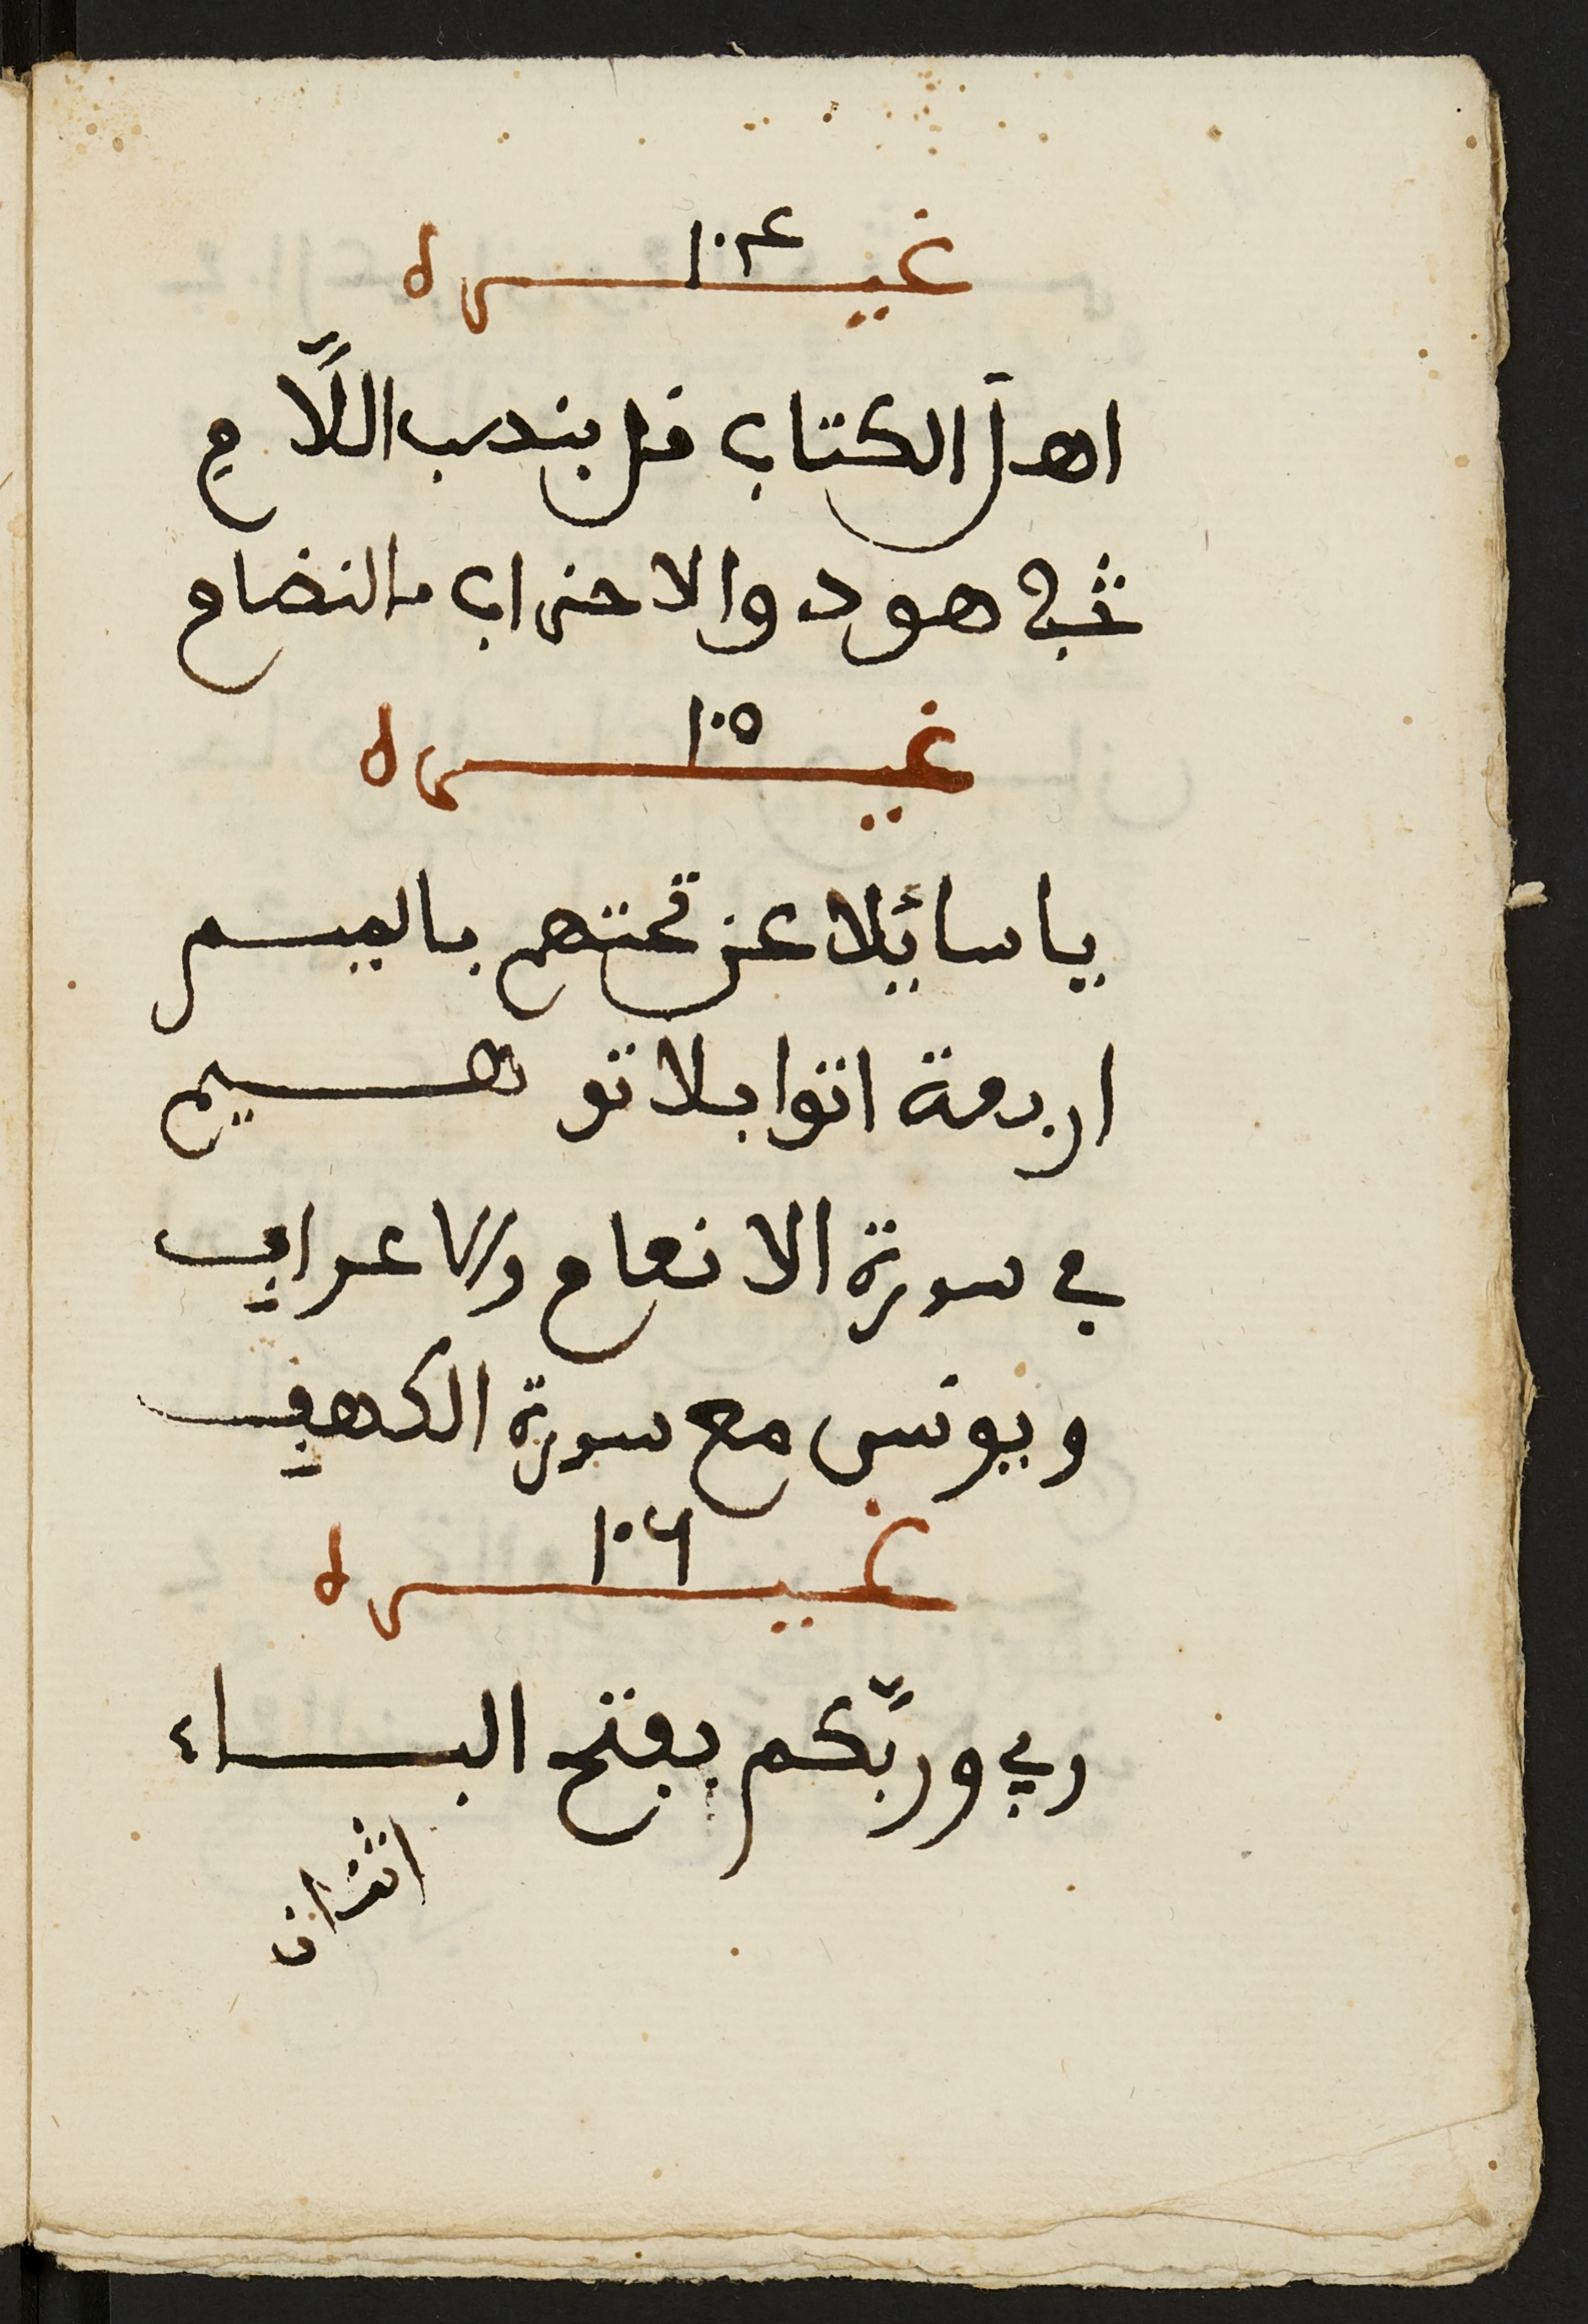 غيره ١٠٤
اهل الكتاب قل بنصب اللَّام
في هود والاحزاب يالنضام
غيره ١٠٥
يا سائلا عن تحتهم بالميم
اربعة اتوا بلا توهيم
في سورة الانعام والاعراف
ويونس مع سورة الكهف
غيره ١٠٦
ربي وربَّكم بفتح الباء
اثنان